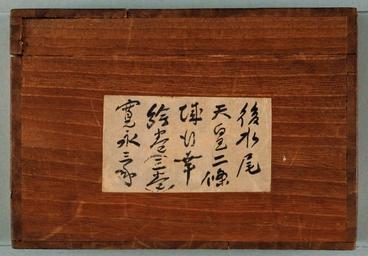 後水尾
天皇二條
城行幸
絵巻全壱
寛永三年